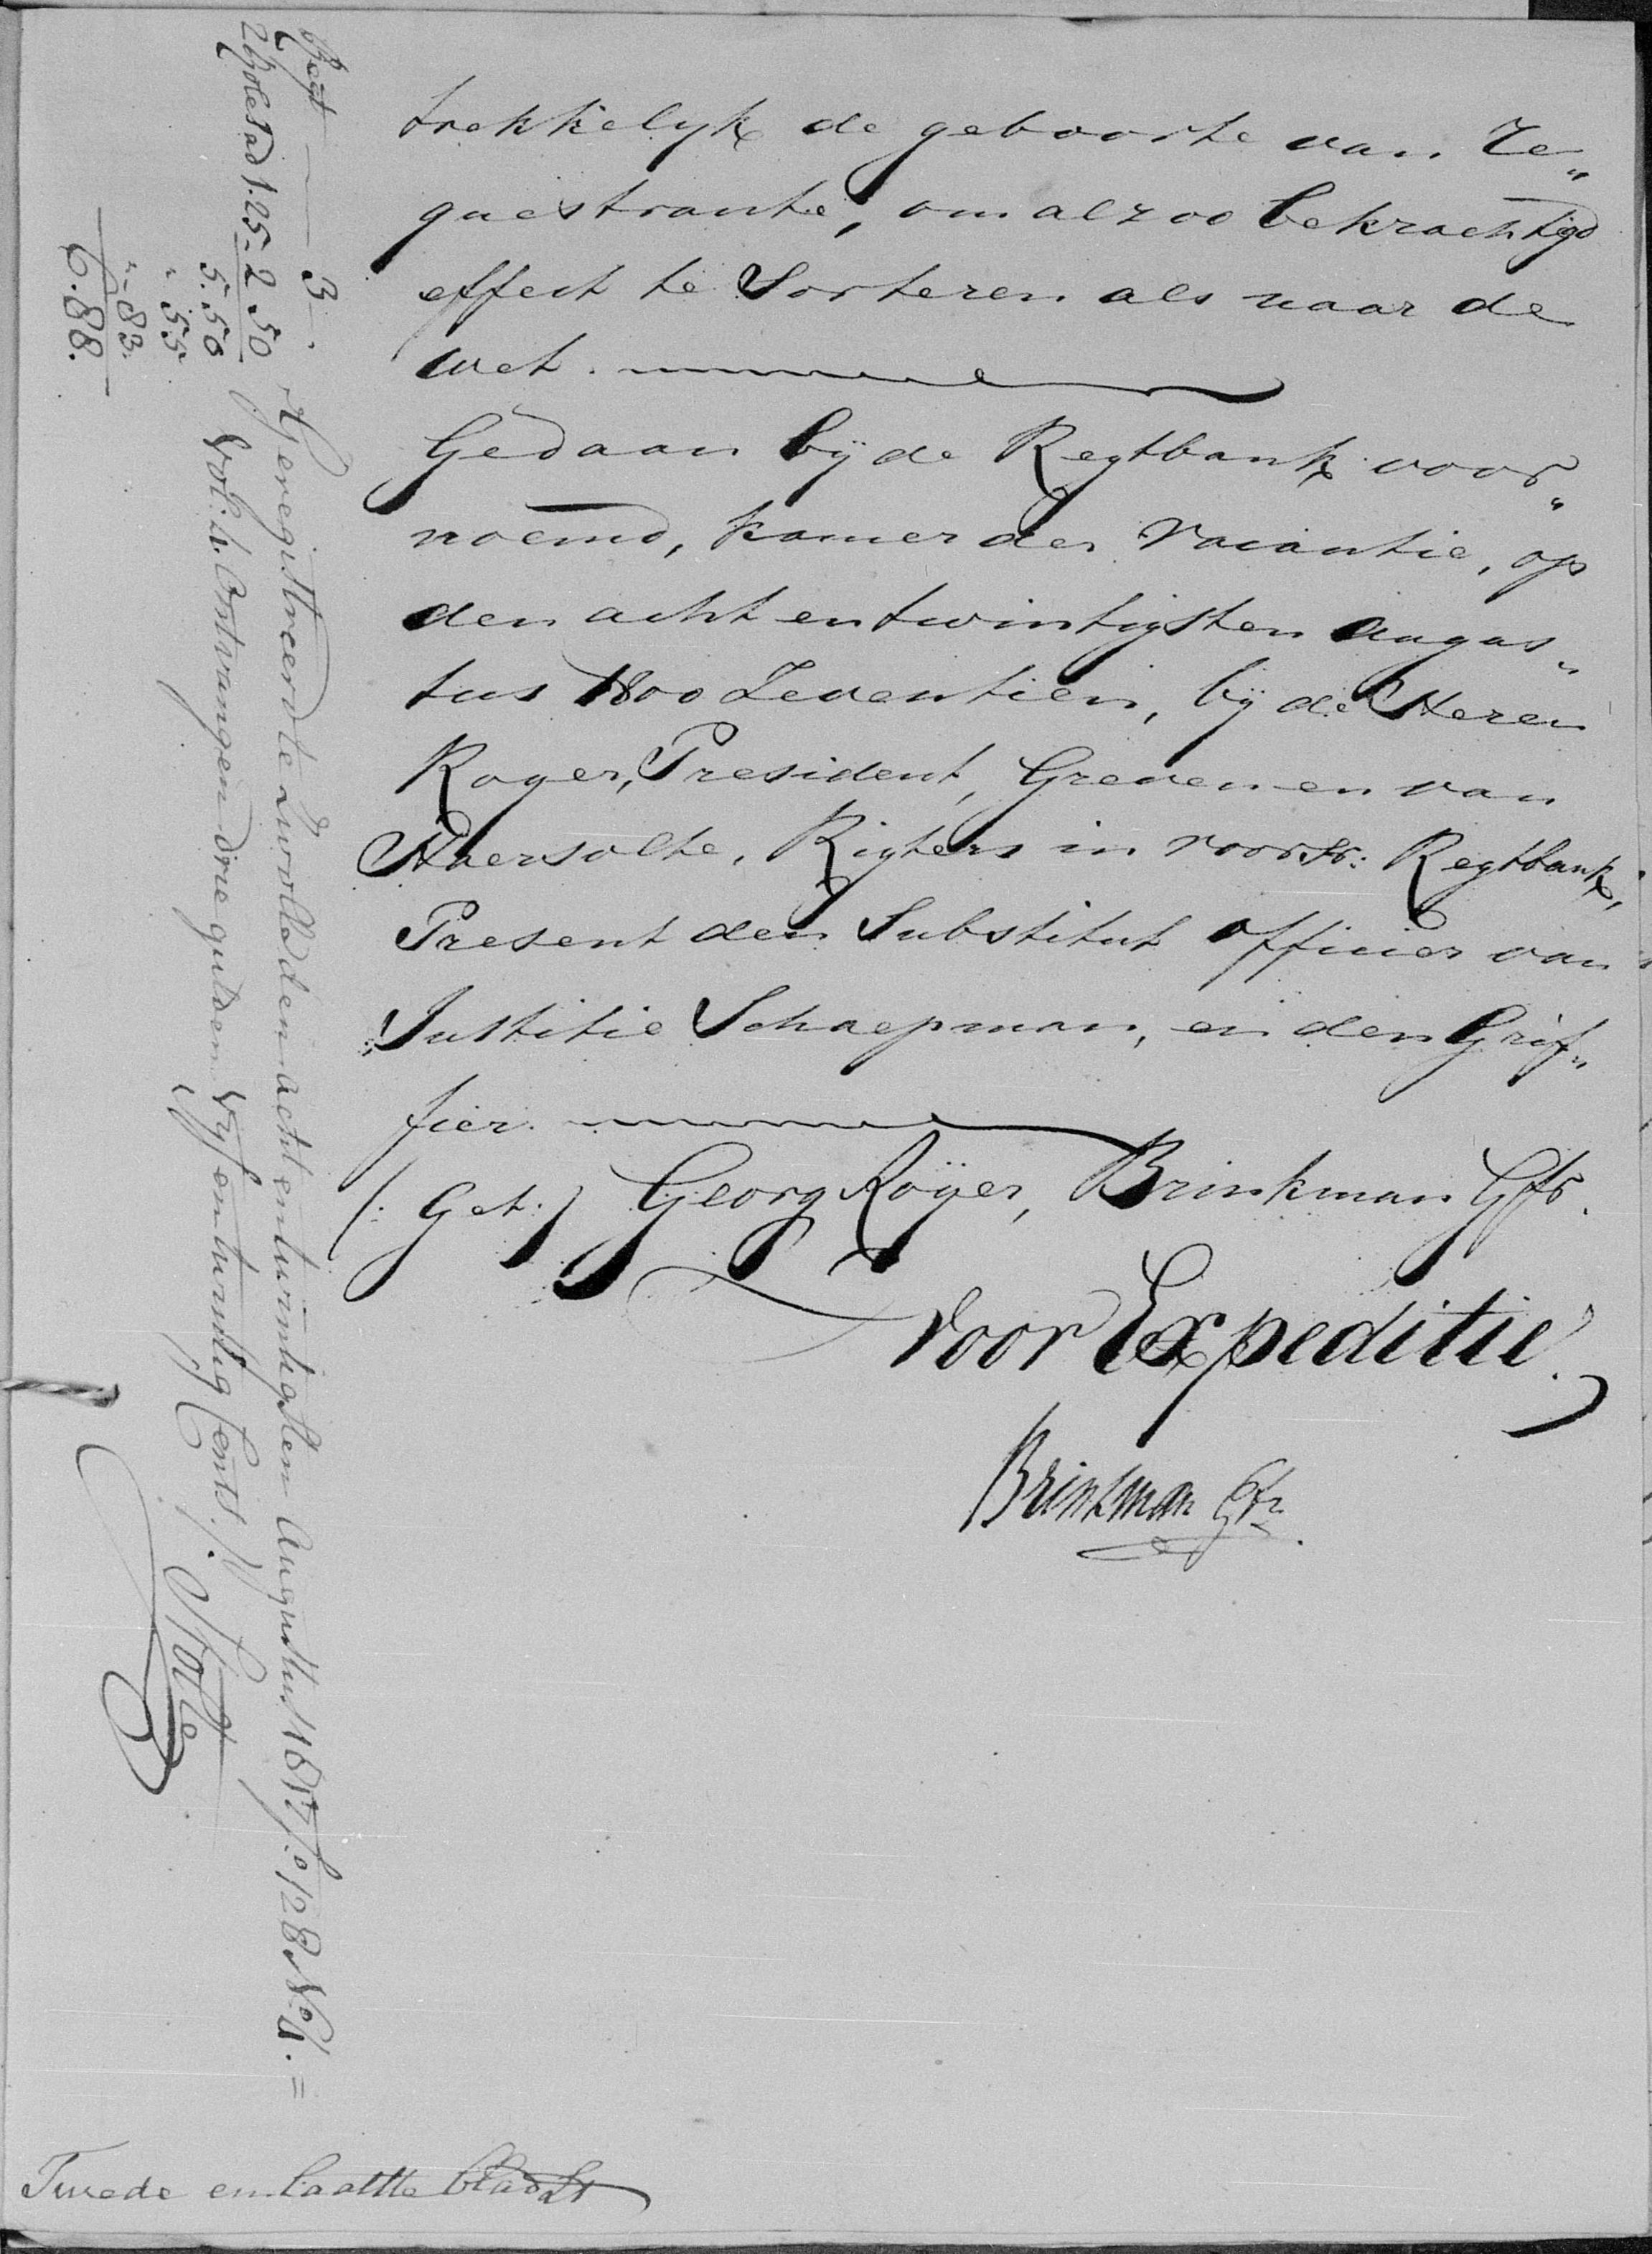 trekkelyk de geboorte van Re„
questrante, om alzoo bekrachtigd
effect te Sorteren als naar de
wet.
Gedaan bij de Regtbank voor„
noemd, kamer der Vacantie, op
den acht en twintigsten Augus„
tus 1800 Zeventien, bij de Heren
Royer, President, Greven en van
Haersolte, Rigters in voorsr: Regtbank,
Present den Substitut officier van
Justitie Schaepman, en den Grif„
fier.
(: Get:) Georg Royer, Brinkman Gffr.
Voor Expeditie
Brinkman Gfr.
Regt — 3 -.
2 Rolet ad 1.25 - 2 50
5.50
" . 55
" - 83.
6.88.
Geregistreerd te Zwolle den acht en twintigsten Augustus 1817 f:o 128 N:o 1. =
Vol: 4. Ontvangen drie gulden vyf en twintig Cents.
Twede en laatste blad